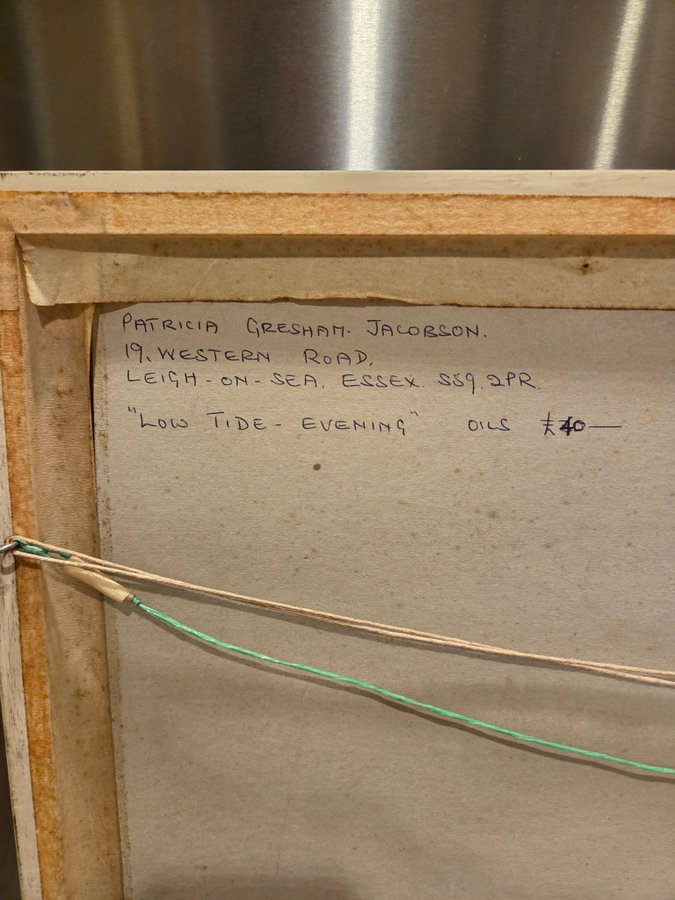 PATRICIA GRESHAM. JACOBSON.
19. WESTERN ROAD.
LEIGH-ON-SEA. ESSEX. SS9. 2PR.
"LOW TIDE - EVENING" OILS £40—